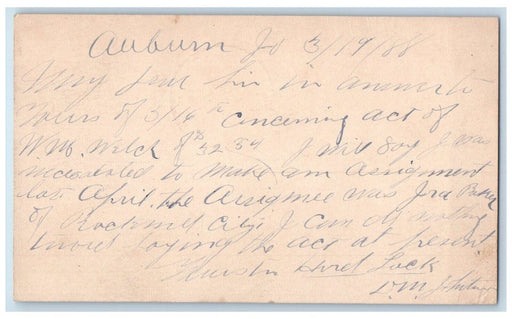 Auburn Io 3/19/88
Dear Sir in answer to
Yours of 3/16 concerning act of
Wm. Welch $32.34 I will say I was
necessitated to make an assignment
last April. the Assignee was Ira
of Rockwell City I can do nothing
toward Paying the act at present
Yours in Hard Luck
D.M.